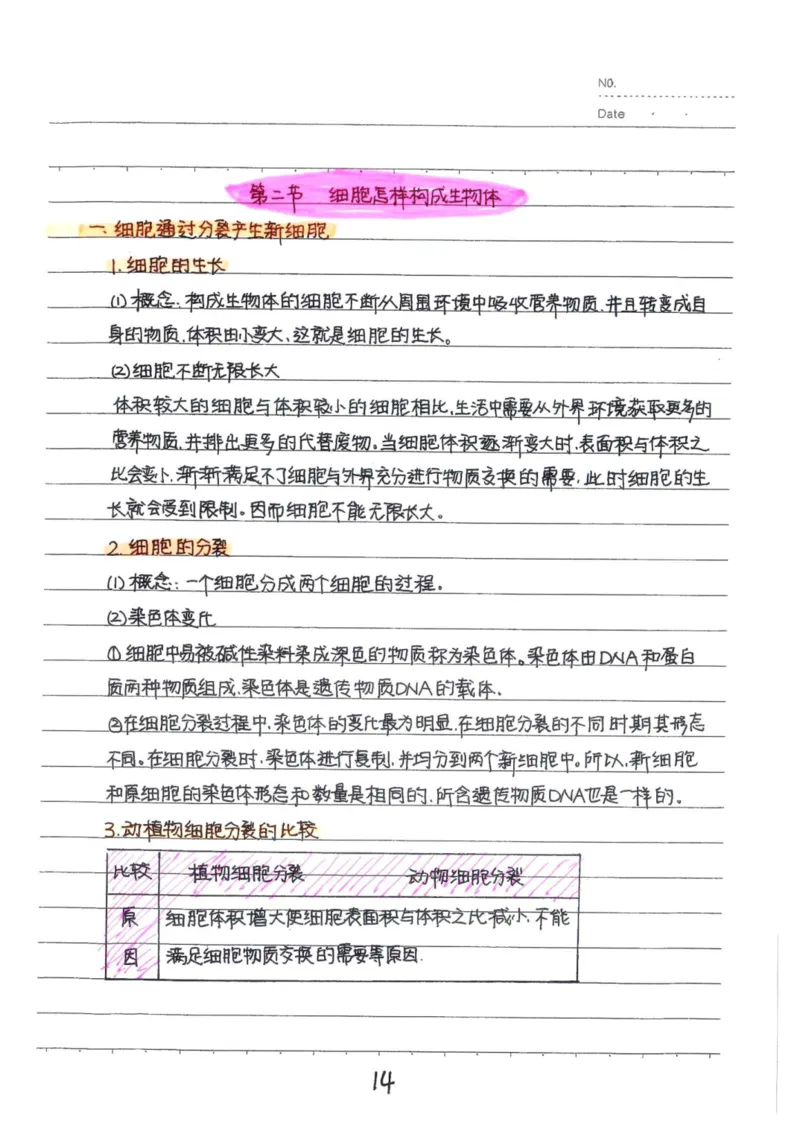 NO.
Date
第二节 细胞怎样构成生物体
一、细胞通过分裂产生新细胞
1.细胞的生长
(1)概念:构成生物体的细胞不断从周围环境中吸收营养物质,并且转变成自
身的物质,体积由小变大,这就是细胞的生长。
(2)细胞不断无限长大
体积较大的细胞与体积较小的细胞相比,生活中需要从外界环境获取更多的
营养物质,并排出更多的代替废物。当细胞体积逐渐变大时,表面积与体积之
比会变小,渐渐满足不了细胞与外界充分进行物质交换的需要,此时细胞的生
长就会受到限制。因而细胞不能无限长大。
2.细胞的分裂
(1)概念:一个细胞分成两个细胞的过程。
(2)染色体变化
①细胞中易被碱性染料染成深色的物质称为染色体。染色体由DNA和蛋白
质两种物质组成,染色体是遗传物质DNA的载体.
②在细胞分裂过程中,染色体的变化最为明显,在细胞分裂的不同时期其形态
不同。在细胞分裂时,染色体进行复制,并均分到两个新细胞中。所以,新细胞
和原细胞的染色体形态和数量是相同的,所含遗传物质DNA也是一样的。
3.动植物细胞分裂的比较
比较 植物细胞分裂 动物细胞分裂
原 细胞体积增大使细胞表面积与体积之比减小,不能
因 满足细胞物质交换的需要等原因.
14